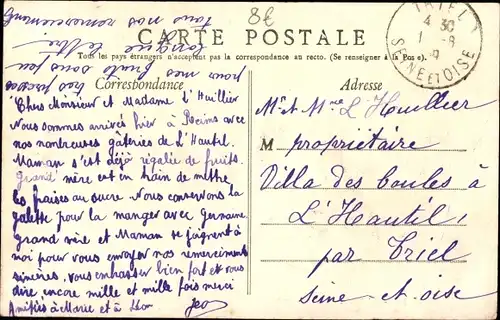 8€
CARTE POSTALE
Tous les pays étrangers n'acceptent pas la correspondance au recto. (Se renseigner à la Poste).
Correspondance
Adresse
TRIEL
4 30
1 - 8
9
SEINE ET OISE
Chers Monsieur et Madame L'Huillier
Nous sommes arrivés hier à avec
nos nombreuses gâteries de L'Hautil.
Maman s'est déjà régalée de fruits.
Grand' mère est en train de
les fraises au sucre. Nous conservons la
galette pour la manger avec Germaine
grand mère et Maman se joignent à
moi pour vous envoyer nos remerciements
sincères, vous embrasser bien fort et vous
dire encore mille et mille fois merci
Amitiés à Marie et à Léon
tous nos remerciements
pour
Mr et Mme L'Huillier
M propriétaire
Villa des boules à
L'Hautil,
par Triel
Seine - et - oise